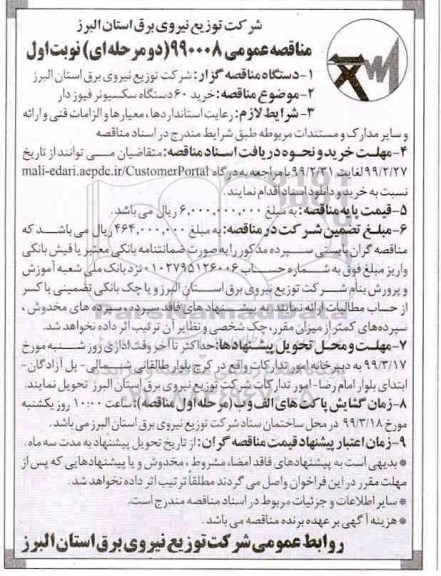 شرکت توزیع نیروی برق استان البرز
مناقصه عمومی ۹۹۰۰۰۸ (دو مرحله ای) نوبت اول
۱- دستگاه مناقصه گزار: شرکت توزیع نیروی برق استان البرز
۲- موضوع مناقصه: خرید ۶۰ دستگاه سکسیونر فیوز دار
۳- شرایط لازم: رعایت استانداردها، معیارها و الزامات فنی و ارائه
و سایر مدارک و مستندات مربوطه طبق شرایط مندرج در اسناد مناقصه
۴- مهلت خرید و نحوه دریافت اسناد مناقصه: متقاضیان می توانند از تاریخ
۹۹/۲/۲۷ لغایت ۹۹/۲/۳۱ با مراجعه به درگاه mali-edari.aepdc.ir/CustomerPortal
نسبت به خرید و دانلود اسناد اقدام نمایند.
۵- قیمت پایه مناقصه: به مبلغ ۶,۰۰۰,۰۰۰,۰۰۰ ریال می باشد.
۶- مبلغ تضمین شرکت در مناقصه: به مبلغ ۴۶۴,۰۰۰,۰۰۰ ریال می باشد که
مناقصه گران بایستی سپرده مذکور را به صورت ضمانتنامه بانکی معتبر یا فیش بانکی
واریز مبلغ فوق به شماره حساب ۰۱۰۲۷۹۵۱۲۶۰۰۶ نزد بانک ملی شعبه آموزش
و پرورش بنام شرکت توزیع نیروی برق استان البرز و یا چک بانکی تضمینی یا کسر
از حساب مطالبات ارائه نمایند. به پیشنهاد های فاقد سپرده، سپرده های مخدوش،
سپرده‌های کمتر از میزان مقرر، چک شخصی و نظایر آن ترتیب اثر داده نخواهد شد.
۷- مهلت و محل تحویل پیشنهادها: حداکثر تا آخر وقت اداری روز شنبه مورخ
۹۹/۳/۱۷ به دبیرخانه امور تدارکات واقع در کرج بلوار طالقانی شمالی- پل آزادگان-
ابتدای بلوار امام رضا- امور تدارکات شرکت توزیع نیروی برق استان البرز تحویل نمایند.
۸- زمان گشایش پاکت های الف و ب (مرحله اول مناقصه): ساعت ۱۰:۰۰ روز یکشنبه
مورخ ۹۹/۳/۱۸ در محل ساختمان ستاد شرکت توزیع نیروی برق استان البرز می باشد.
۹- زمان اعتبار پیشنهاد قیمت مناقصه گران: از تاریخ تحویل پیشنهاد به مدت سه ماه.
* بدیهی است به پیشنهادهای فاقد امضاء، مشروط، مخدوش و یا پیشنهادهایی که پس از
مهلت مقرر در این فراخوان واصل می گردند مطلقاً ترتیب اثر داده نخواهد شد.
* سایر اطلاعات و جزئیات مربوط در اسناد مناقصه مندرج است.
* هزینه آگهی بر عهده برنده مناقصه می باشد.
روابط عمومی شرکت توزیع نیروی برق استان البرز